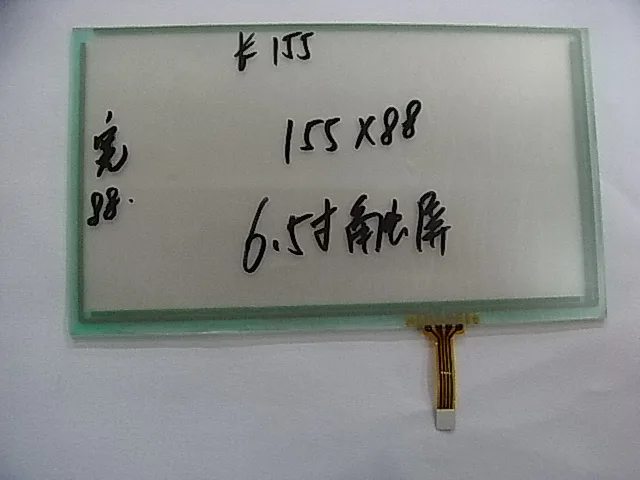 长155
宽
88.
155X88
6.5寸触屏